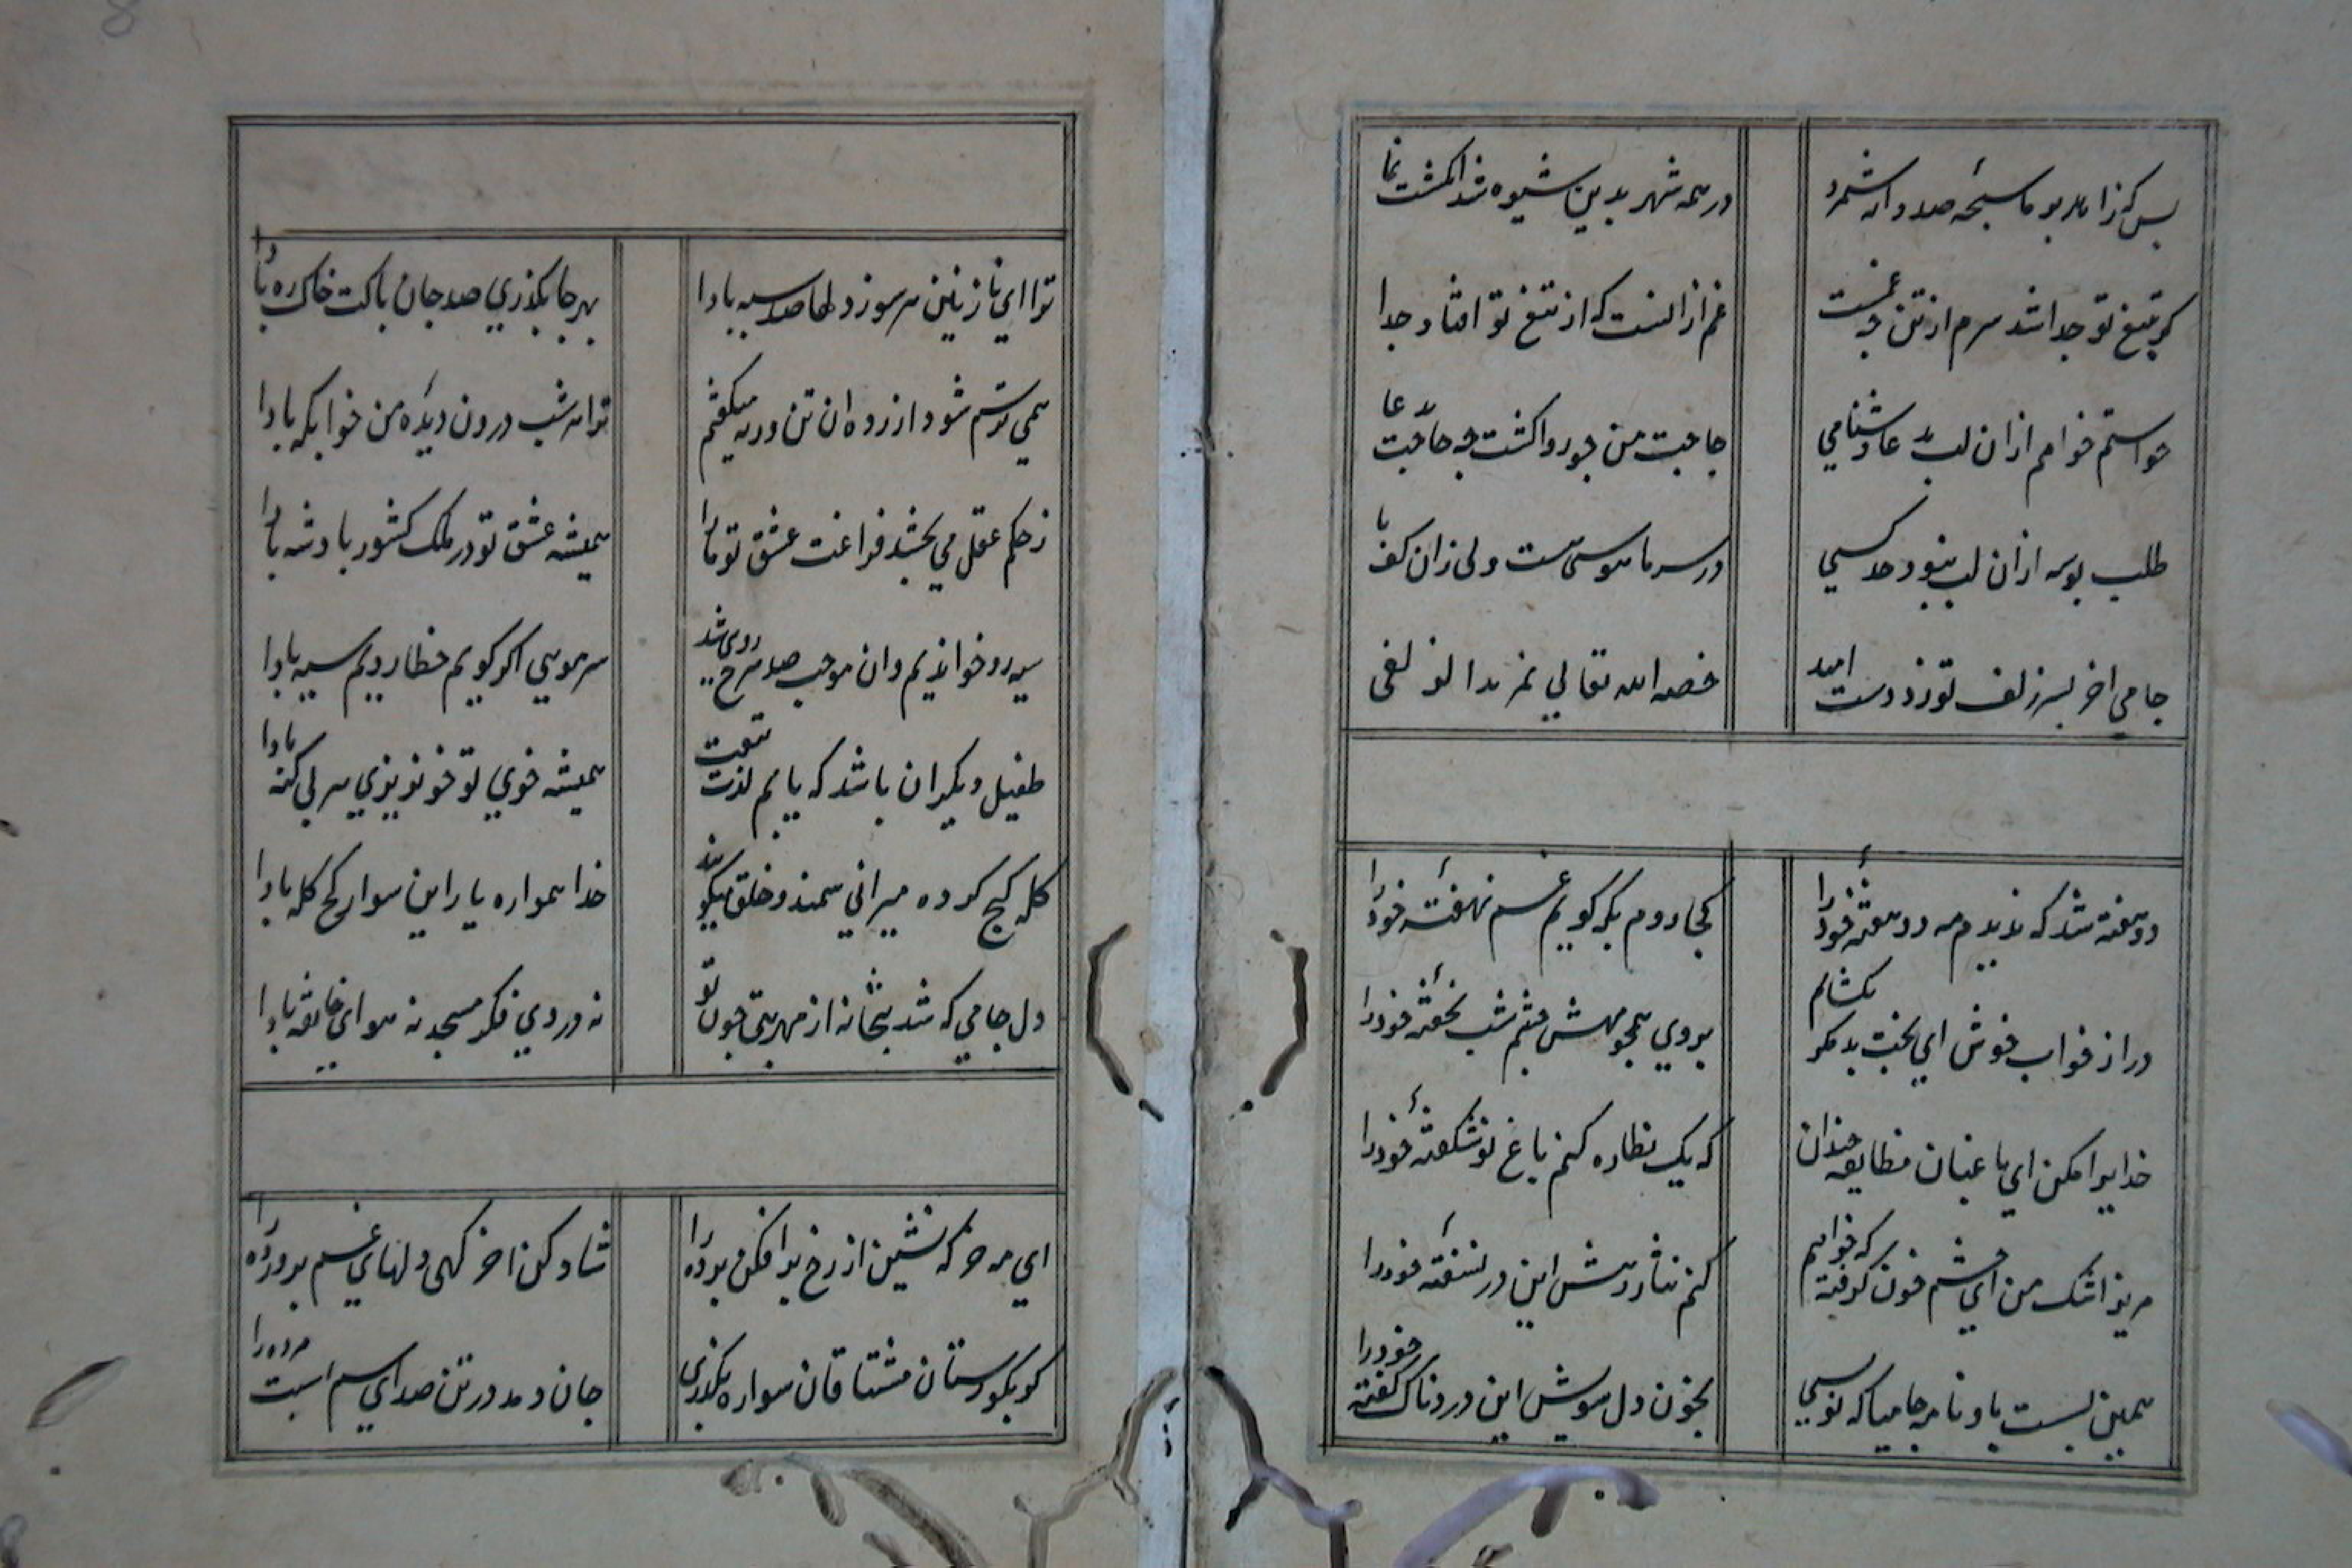 بس که زاهد بریا سبحهٔ صد دانه شمرد در همه شهر بدین شیوه شد انگشت نما
گر بتیغ تو جدا شد سرم از تن چه غمست غم از آنست که از تیغ تو افتاد جدا
خواستم خواهم ازان لب بدعا دشنامی حاجت من چو روا گشت چه حاجت بدعا
طلب بوسه ازان لب نبود حد کسی در سر ما هوسی هست ولی زان کف پا
جامی اخر بسر زلف تو زد دست امید خصه الله تعالی نمزیدا لزلفی
دو هفته شد که ندیدم مه دو هفتهٔ خود را کجا روم بکه گویم غم نهفتهٔ خود را
در از خواب خوش ای بخت بد مکر بکشایم بروی همچو مهش چشم شب نخفتهٔ خود را
خدایرا مکن ای باغبان مضایقه چندان که یک نظاره کنم باغ نو شکفتهٔ خود را
مریز اشک من ای چشم خون گرفته که خواهم کنم نثار رهش این در نسفتهٔ خود را
همین بست با و نامه جامیا که نویسی بخون دل سویش این دردناک گفتهٔ خود را
ترا ای نازنین هر سو ز دلها صد سپه بادا بهر جا بگذری صد جان پاکت خاک ره بادا
همی ترسم شود ازرده ان تن ورنه میگفتم ترا هر شب درون دیدهٔ من خوابگه بادا
ز حکم عقل می بخشد فراغت عشق تو ما را همیشه عشق تو در ملک کشور پادشه بادا
سیه رو خواندیم وان موجب صد سرخ رویی شد سر مویی اگر گویم خطا رویم سیه بادا
طفیل دیگران باشد که یابم لذت تیغت همیشه خوی تو خونریزی هر بی گنه بادا
کله کج کرده میرانی سمند و خلق میگویند خدا همواره یار این سوار کج کله بادا
دل جامی که شد بتخانه از مهر بتی چون تو نه در وی فکر مسجد نه هوای خانقه بادا
ای مه خرگه نشین از رخ برافکن پرده را شاد کن اخر گهی دلهای غم پرورده را
گر بگورستان مشتاقان سواره بگذری جان دمد در تن صدای سم اسبت مرده را